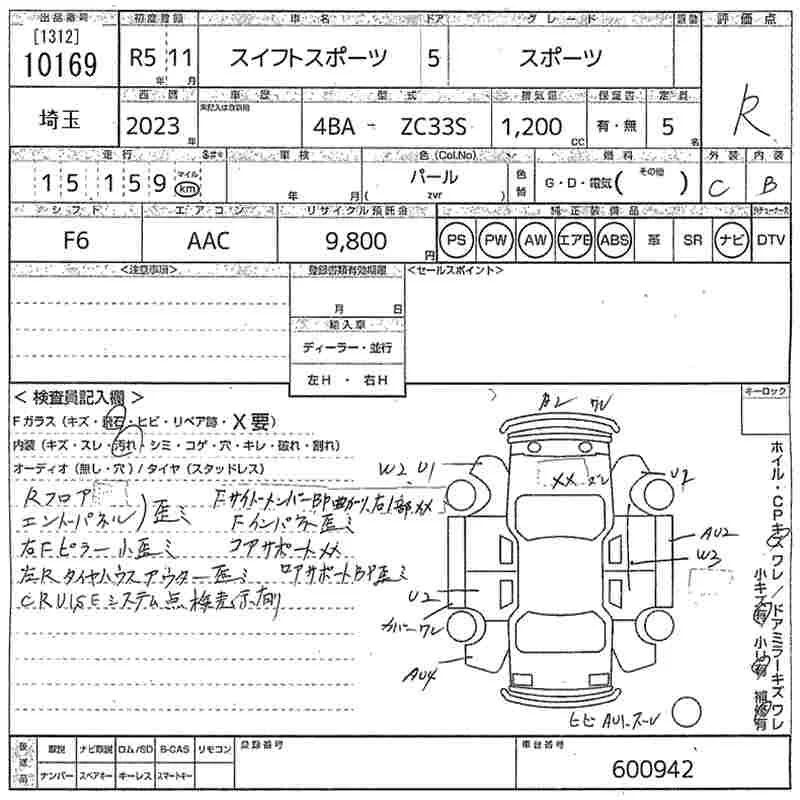 出品番号 初度登録 車名 ドア グレード 評価点
[1312]
10169 R5 11 スイフトスポーツ 5 スポーツ R
年 月
西暦 車歴 型式 排気量 保証書 定員
埼玉 2023 年 4BA - ZC33S 1,200 cc 有・無 5 名
走行 車検 色(Col.No) 燃料 外装 内装
15159 マイル km 年 月 パール ( zvr ) 色替 G・D・電気( その他 ) C B
シフト エアコン リサイクル預託金 純正装備品
F6 AAC 9,800 円 PS PW AW エアB ABS 革 SR ナビ DTV
<注意事項> 登録書類有効期限 <セールスポイント>
月 日
輸入車
ディーラー・並行
左H ・ 右H
<検査員記入欄> キーロック
Fガラス(キズ・飛石・ヒビ・リペア跡・X要)
内装(キズ・スレ・汚れ・シミ・コゲ・穴・キレ・破れ・割れ)
オーディオ(無し・穴)/タイヤ(スタッドレス)
Rフロア
エンドパネル)歪ミ
Fインパネ歪ミ
右Fピラー小歪ミ コアサポートXX
左Rタイヤハウスアウター歪ミ ロアサポートBP歪ミ
CRUISEシステム点検表示有り
ワレ
W2 U1
XX ズレ
U2
AU2
W3
U2
カバーワレ
AU4
ヒビ AU1
ホイル・CPキズワレ/ドアミラーキズワレ
小キズ有 小凹有 補修有
後送品 取説 ナビ取説 ロム/SD B-CAS リモコン 登録番号 車台番号
ナンバー スペアキー キーレス スマートキー 600942